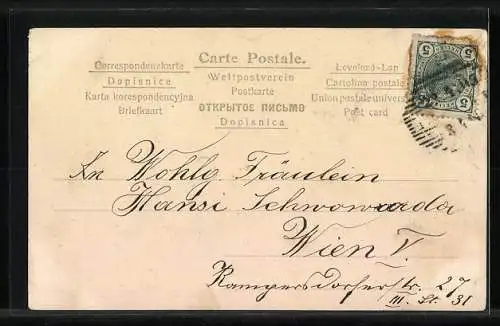 Carte Postale.
Correspondenzkarte
Dopisnice
Karta korespondencyjna
Briefkaart
Weltpostverein
Postkarte
ОТКРЫТОЕ ПИСЬМО
Dopisnica
Levelező-Lap
Cartolina postale
Union postale universelle
Post card
5 5
5 5
An Wohlg Fräulein
Hansi Schwowarda
Wien V.
Rampersdorferstr. 27
III. St. 31